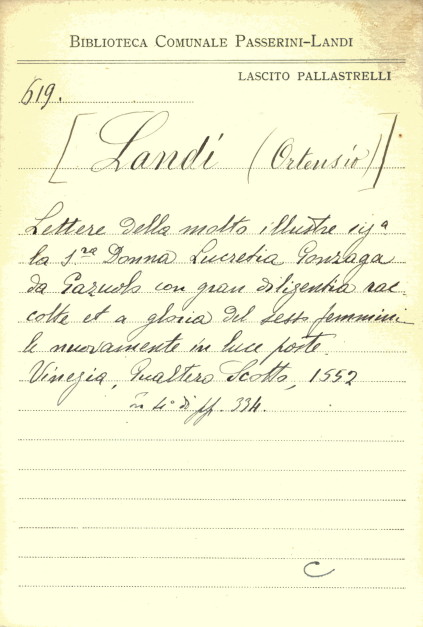 BIBLIOTECA COMUNALE PASSERINI-LANDI
LASCITO PALLASTRELLI
619.
[Landi (Ortensio)]
Lettere della molto illustre sig.ª
la s.ra Donna Lucretia Gonzaga
da Gazuolo con gran diligentia rac
colte et a gloria del sesso femmini
le nuovamente in luce poste.
Vinegia, Gualtero Scotto, 1552
in 4° di ff. 334.
C